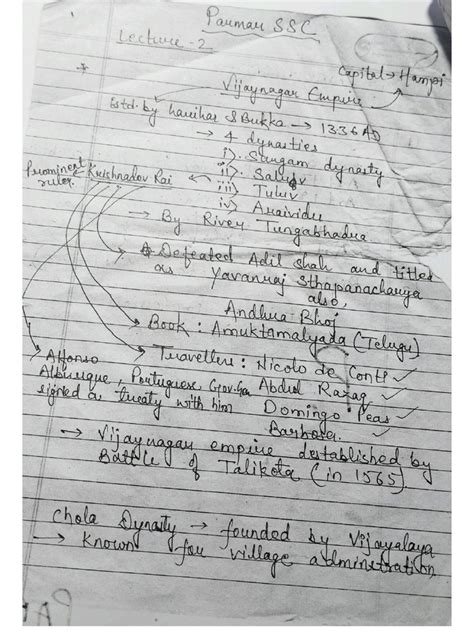 Parmar SSC
Lecture - 2
Capital → Hampi
* Vijaynagar Empire
Estd. by harihar & Bukka → 1336 AD
→ 4 dynasties
i) Sangam dynasty
Prominent ruler. Krishnadev Rai
ii) Saluv
iii) Tuluv
iv) Araividu
→ By River Tungabhadra
→ Defeated Adil shah and titles
as Yavanraj Sthapanacharya
also,
Andhra Bhoj
→ Book : Amuktamalyada (Telugu)
→ Travellers : Nicolo de Conti ✓
Abdul Razaq ✓
Domingo Peas ✓
Barbosa. ✓
→ Alfonso
Alburqque, Portuguese, Gov. Gen
signed a treaty with him
→ Vijaynagar empire destablished by
Battle of Talikota (in 1565)
Chola Dynasty → founded by Vijayalaya
→ Known for village adminstration